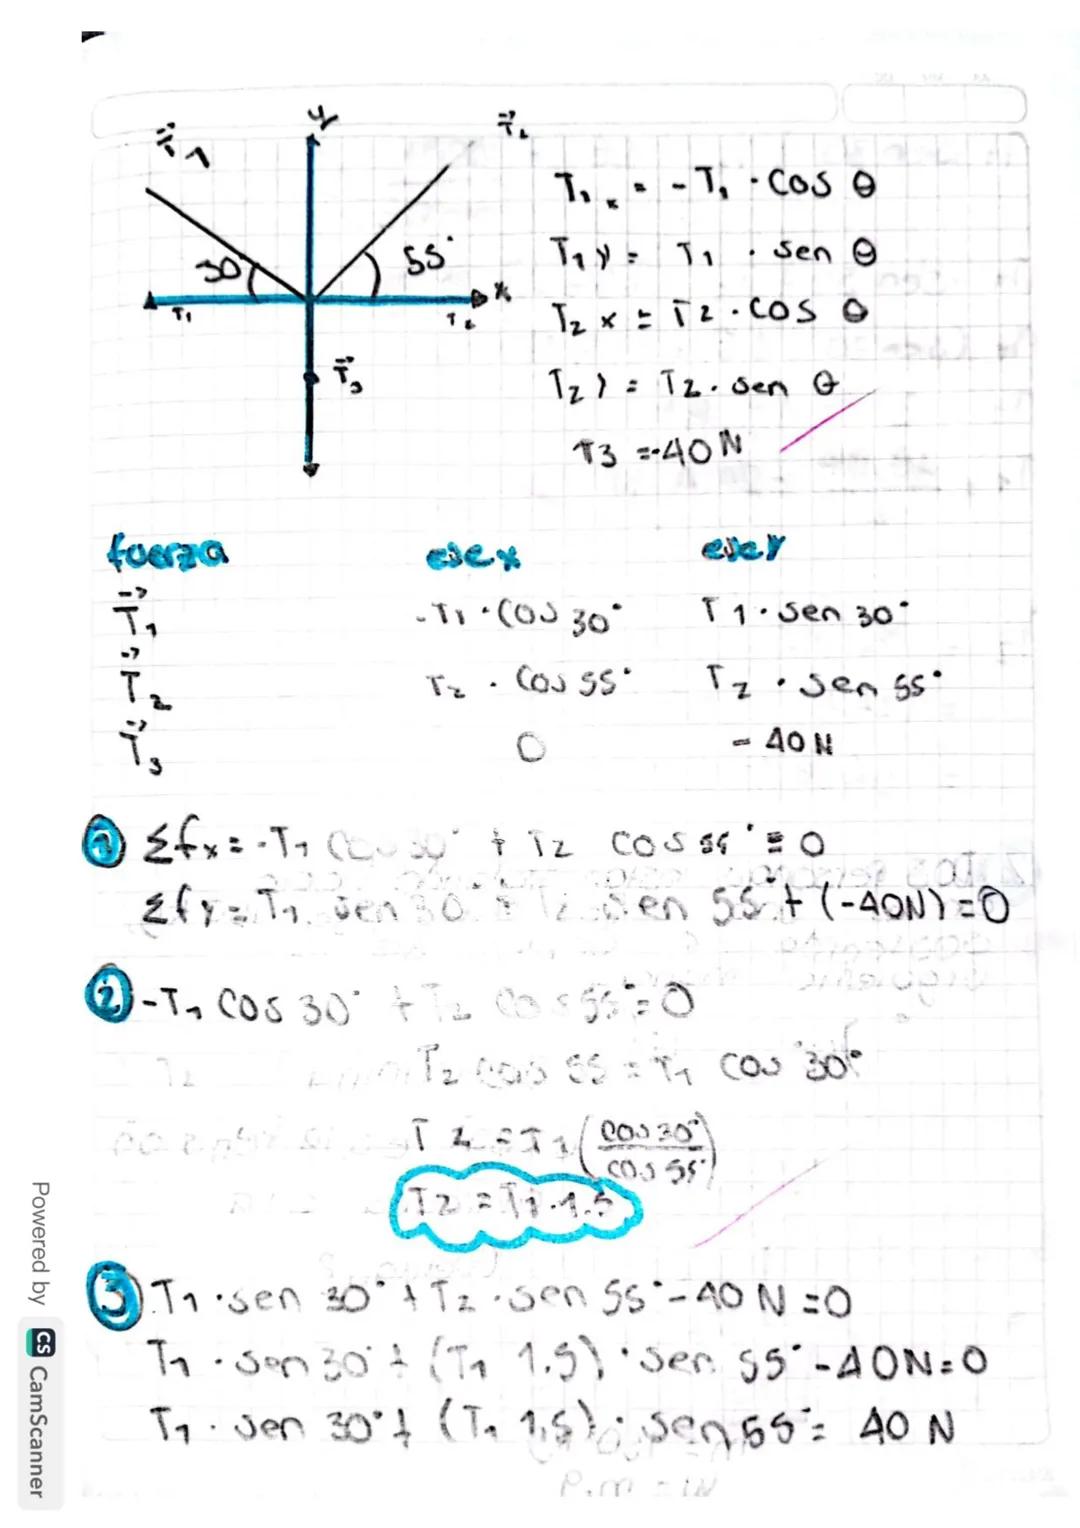 y
T⃗1
T⃗2
30
55°
x
T1
T2
T⃗3
T1x = -T1 · COS θ
T1y = T1 · sen θ
T2x = T2 · COS θ
T2y = T2 · sen θ
T3 = -40N
fuerza eje x eje y
T⃗1 -T1 · COS 30° T1 · sen 30°
T⃗2 T2 · COS 55° T2 · sen 55°
T⃗3 0 - 40 N
① Σfx = -T1 COS 30° + T2 COS 55° = 0
Σfy = T1 sen 30° + T2 sen 55° + (-40N) = 0
② -T1 COS 30° + T2 COS 55° = 0
T2 COS 55 = T1 COS 30°
T2 = T1 (COS 30° / COS 55°)
T2 = T1 · 1.5
③ T1 · sen 30° + T2 · sen 55° - 40 N = 0
T1 · sen 30° + (T1 1.5) · sen 55° - 40N = 0
T1 · sen 30° + (T1 1.5) · sen 55° = 40 N
Powered by CS CamScanner